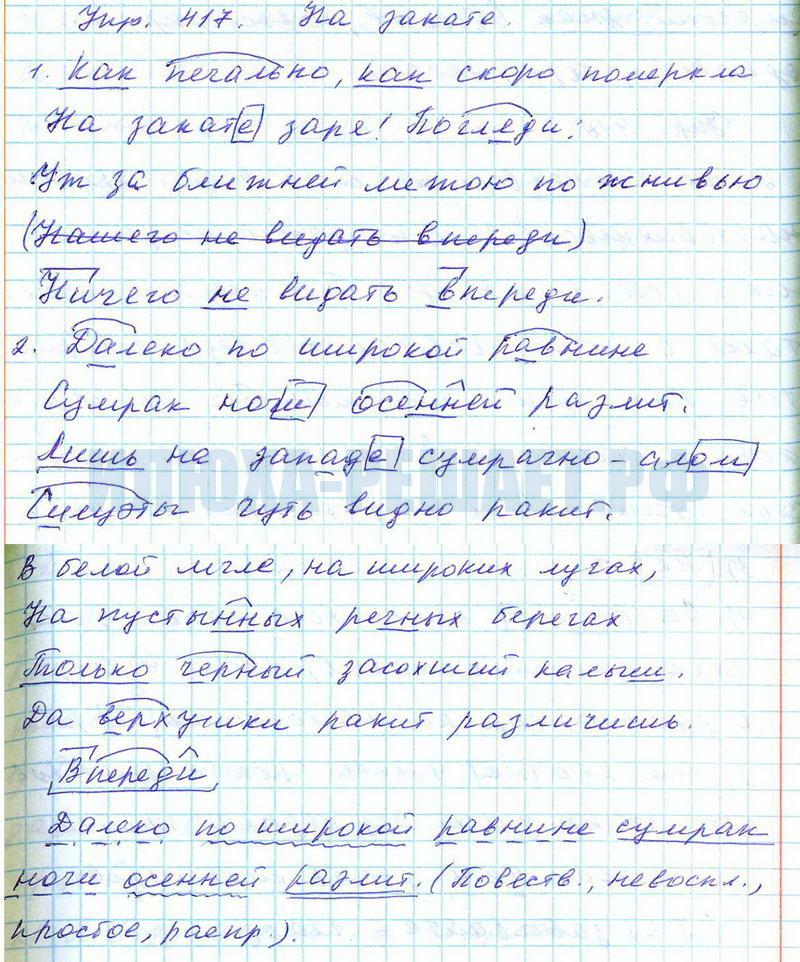 Упр. 417. На закате.
1. Как печально, как скоро померкла
На закате заря! Погляди:
Уж за ближней межою по жнивью
(Нашего не видать впереди)
Ничего не видать впереди.
2. Далеко по широкой равнине
Сумрак ночи осенней разлит.
Лишь на западе сумрачно-алом
Силуэты чуть видно ракит.
В белой мгле, на широких лугах,
На пустынных речных берегах
Только черный засохший камыш.
Да верхушки ракит различишь.
Впереди
Далеко по широкой равнине сумрак
ночи осенней разлит. (Повеств., невоскл.,
простое, распр.).